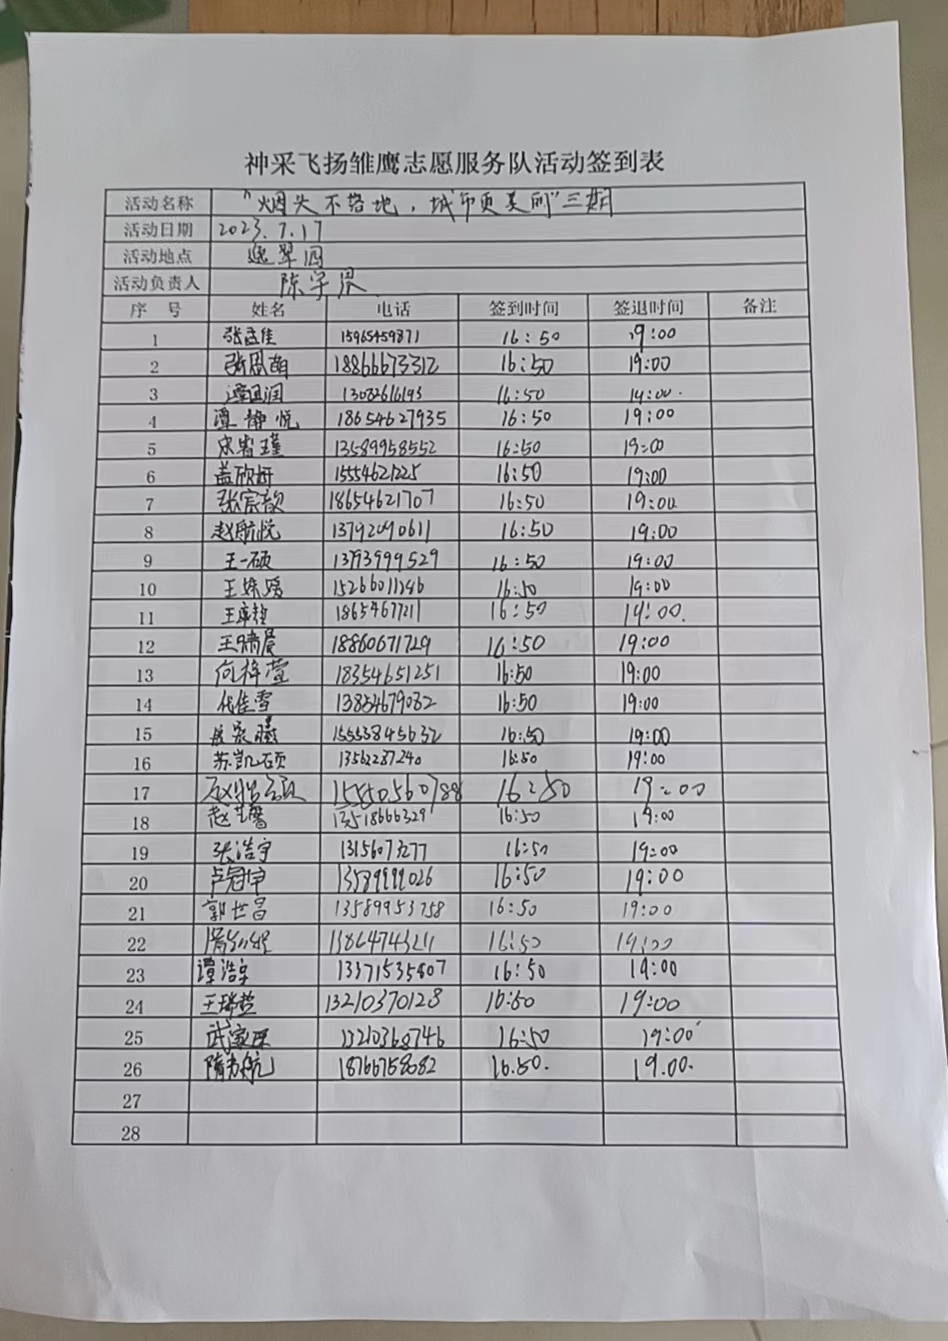 神采飞扬雏鹰志愿服务队活动签到表
活动名称 "烟头不落地，城市更美丽"三期
活动日期 2023.7.17
活动地点 逸翠园
活动负责人 陈学界
序 号 姓名 电话 签到时间 签退时间 备注
1 张孟佳 15965459871 16:50 19:00
2 张恩萌 18866673312 16:50 19:00
3 13082616193 16:50 19:00.
4 谭静悦 18654627935 16:50 19:00
5 宋睿瑾 13589958552 16:50 19:00
6 盖欣妤 15554621225 16:50 19:00
7 张宗歆 18654621707 16:50 19:00
8 赵航悦 13792090611 16:50 19:00
9 王一硕 13793999529 16:50 19:00
10 15266011246 16:50 19:00
11 18654677211 16:50 19:00.
12 王晴晨 18860671729 16:50 19:00
13 何梓萱 18354651251 16:50 19:00
14 代佳雪 13854679082 16:50 19:00
15 15553845632 16:50 19:00
16 苏凯硕 13562287240 16:50 19:00
17 15550560788 16:50 19:00
18 13518666329 16:50 19:00
19 张浩宇 13156073277 16:50 19:00
20 卢冠坤 13589999026 16:50 19:00
21 郭世昌 13589953758 16:50 19:00
22 13864743211 16:50 19:00
23 谭浩宇 13371535807 16:50 19:00
24 王瑞哲 13210370128 16:50 19:00
25 13210368746 16:50 19:00
26 18766758682 16.50. 19.00.
27
28